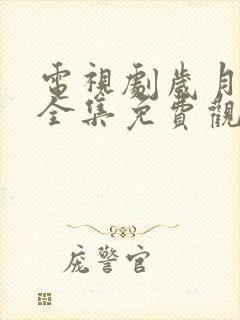 電視劇歲月
全集免費觀
庞警官